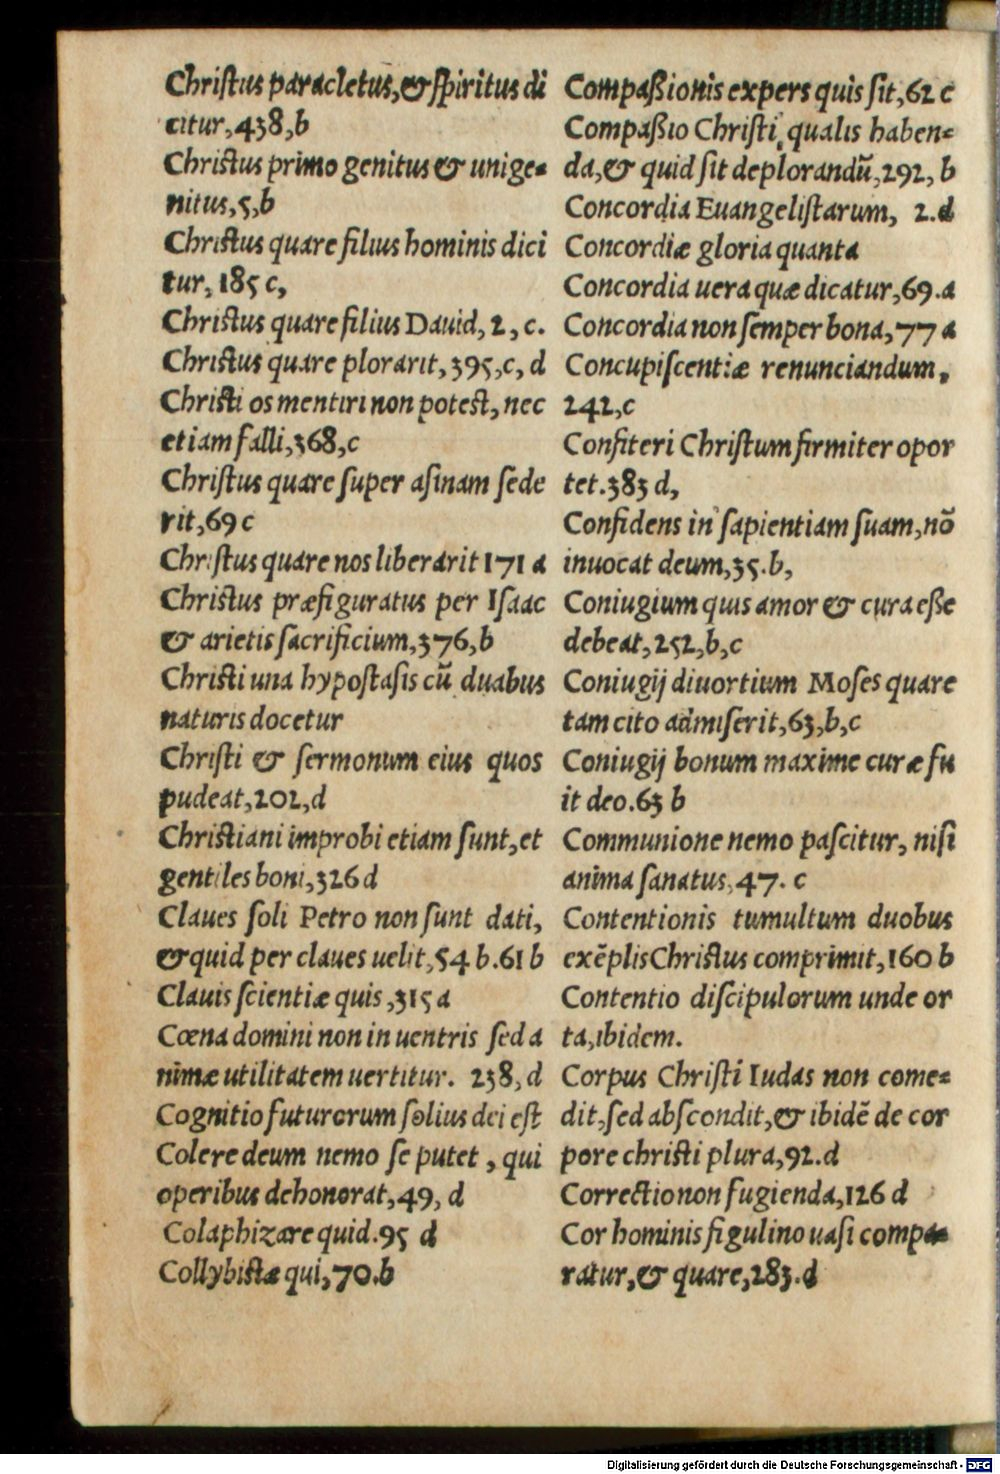 Christus paracletus,& spiritus di
citur,438,b
Christus primo genitus & unige=
nitus,5,b
Christus quare filius hominis dici
tur, 185 c,
Christus quare filius Dauid, 2, c.
Christus quare plorarit, 395,c, d
Christi os mentiri non potest, nec
etiam falli,368,c
Christus quare super asinam sede
rit,69 c
Christus quare nos liberarit 171 a
Christus præfiguratus per Isaac
& arietis sacrificium,376,b
Christi una hypostasis cũ duabus
naturis docetur
Christi & sermonum eius quos
pudeat,202,d
Christiani improbi etiam sunt,et
gentiles boni,326 d
Claues soli Petro non sunt dati,
& quid per claues uelit,54 b.61 b
Clauis scientiæ quis,315 a
Cœna domini non in uentris sed a
nimæ utilitatem uertitur. 238, d
Cognitio futurorum solius dei est
Colere deum nemo se putet, qui
operibus dehonorat,49, d
Colaphizare quid.95 d
Collybistæ qui,70.b
Compaßionis expers quis sit,62 c
Compaßio Christi, qualis haben=
da,& quid sit deplorandũ,292, b
Concordia Euangelistarum, 2.d
Concordiæ gloria quanta
Concordia uera quæ dicatur,69.a
Concordia non semper bona,77 a
Concupiscentiæ renunciandum,
242,c
Confiteri Christum firmiter opor
tet.383 d,
Confidens in sapientiam suam,nõ
inuocat deum,35.b,
Coniugium quis amor & cura eße
debeat,252,b,c
Coniugij diuortium Moses quare
tam cito admiserit,63,b,c
Coniugij bonum maxime curæ fu
it deo.63 b
Communione nemo pascitur, nisi
anima sanatus,47. c
Contentionis tumultum duobus
exẽplis Christus comprimit,160 b
Contentio discipulorum unde or
ta,ibidem.
Corpus Christi Iudas non come=
dit,sed abscondit,& ibidẽ de cor
pore christi plura,92.d
Correctio non fugienda,126 d
Cor hominis figulino uasi compa=
ratur,& quare,283.d
Digitalisierung gefördert durch die Deutsche Forschungsgemeinschaft - DFG